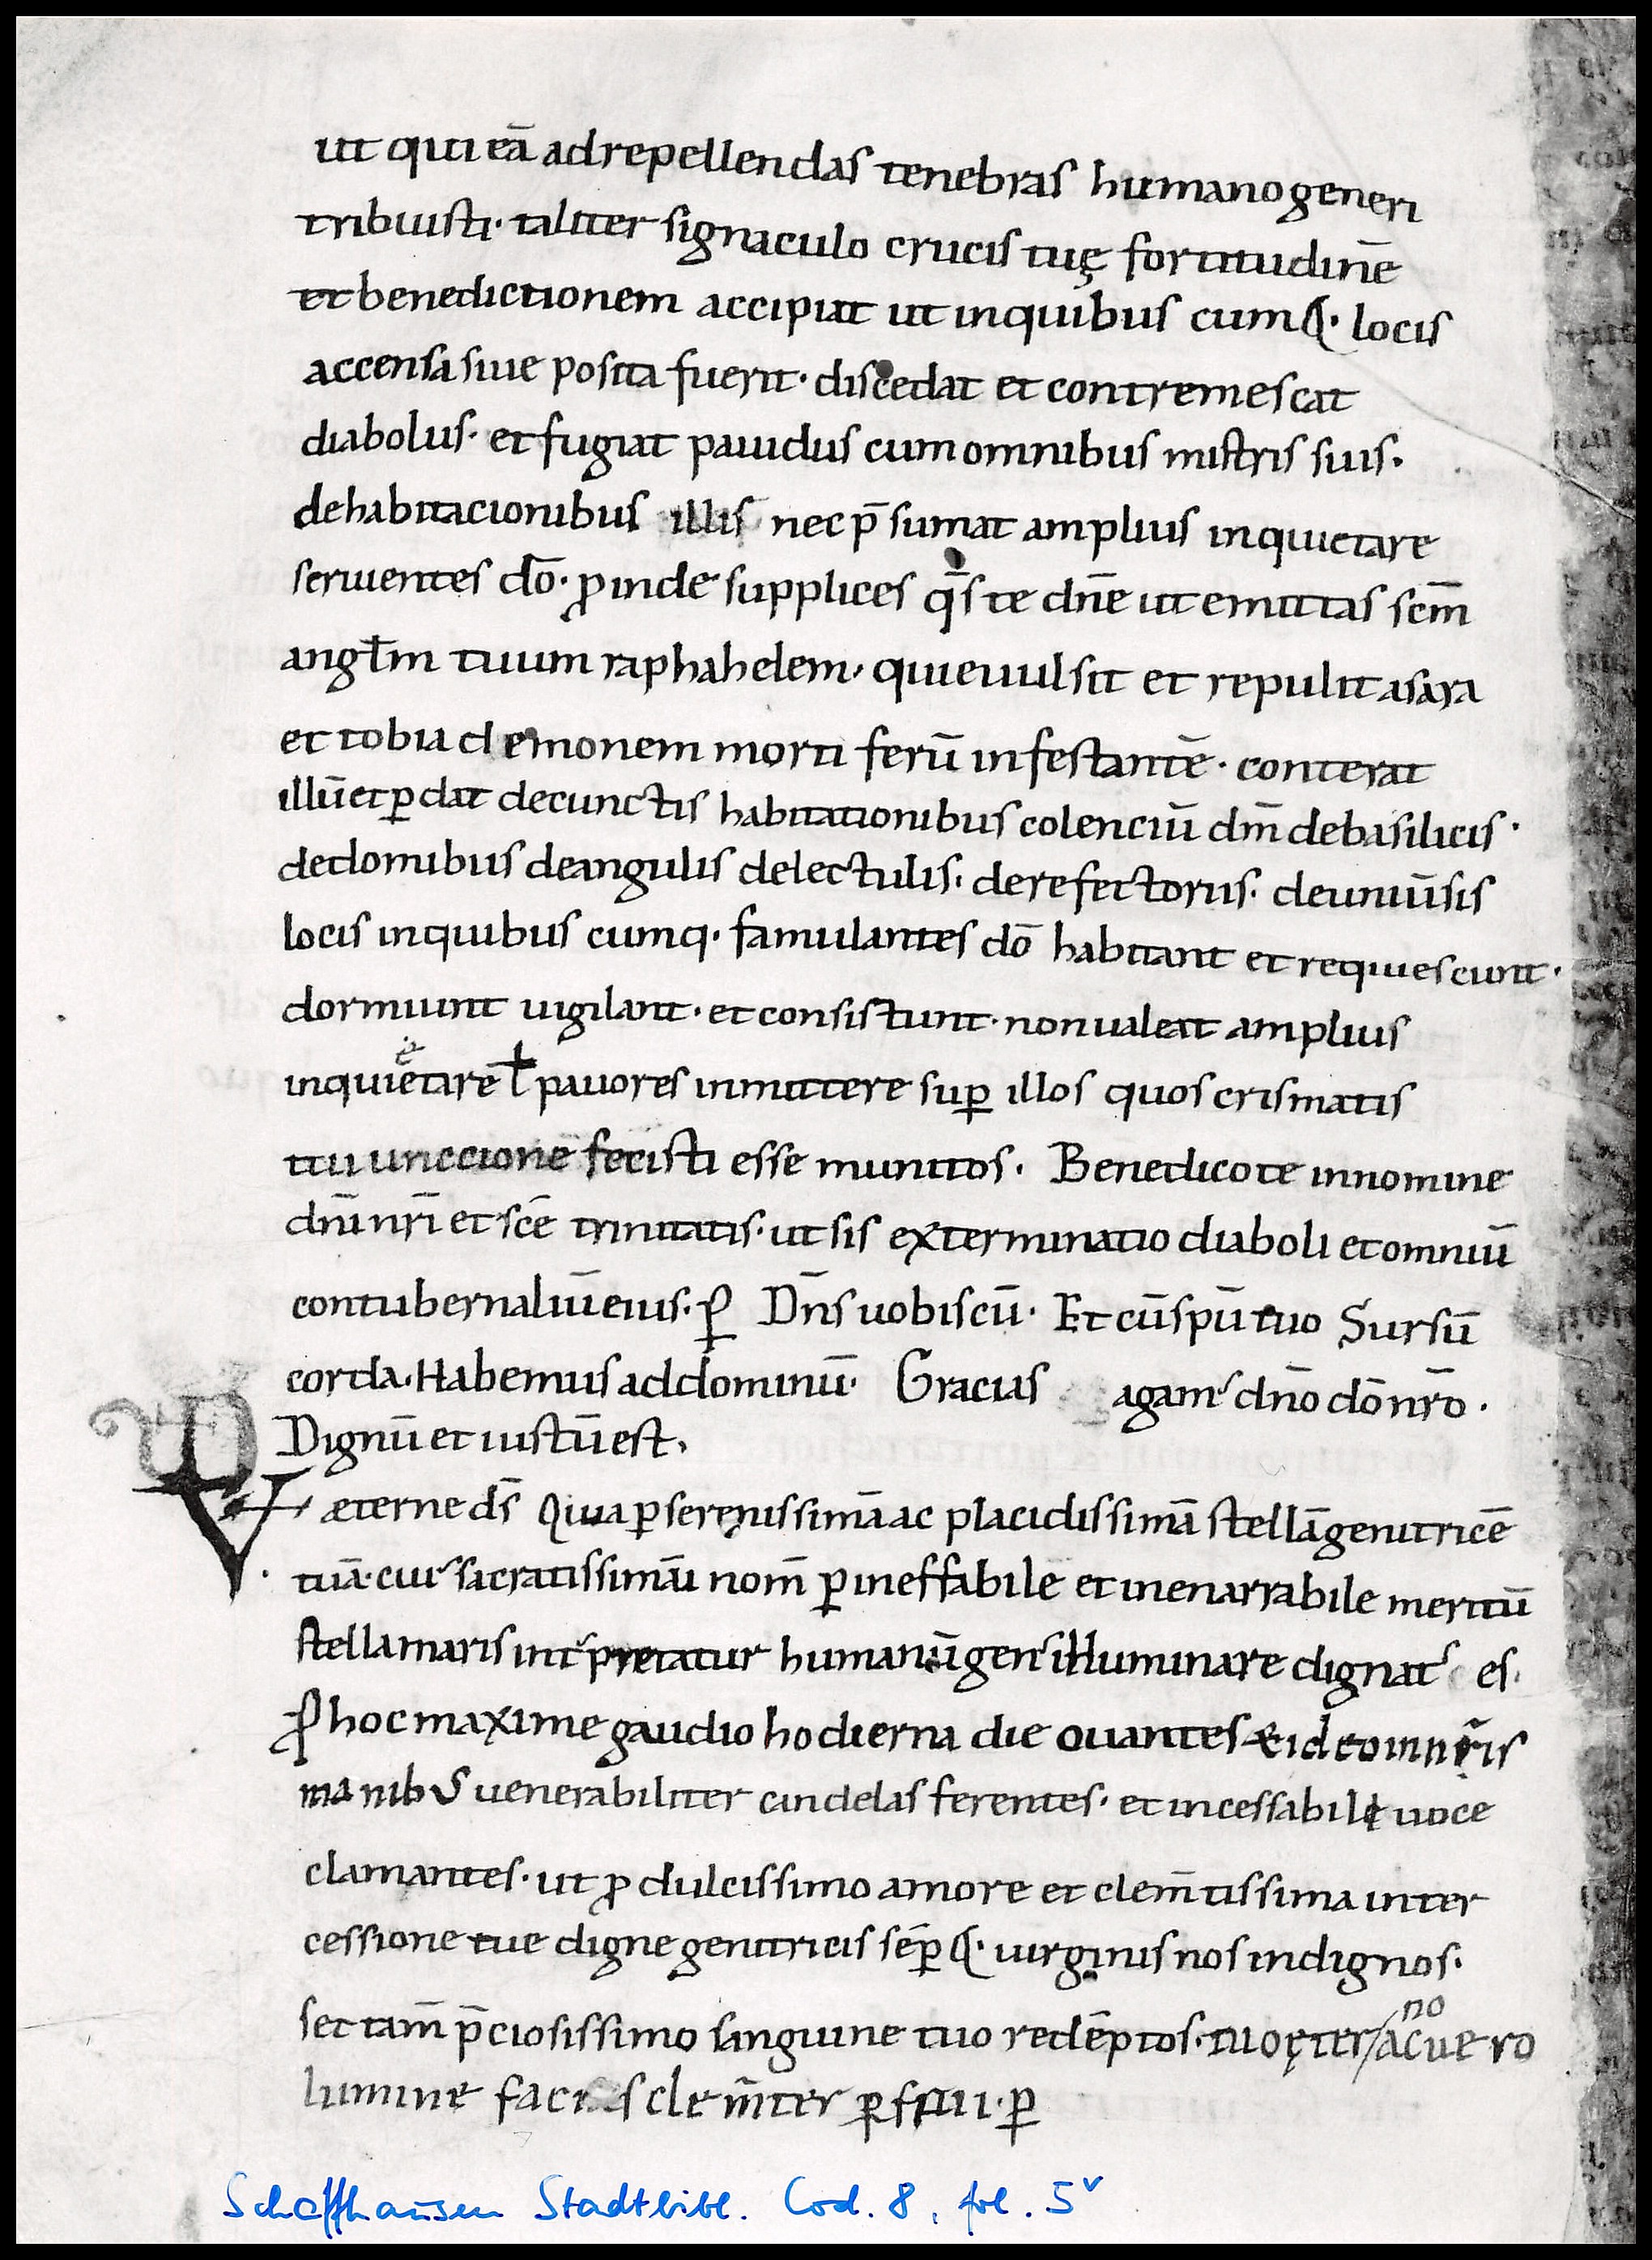 ut qui eā ad repellendas tenebras humano generi
tribuisti· taliter signaculo crucis tuę fortitudinē
et benedictionem accipiat ut in quibus cumq· locis
accensa siue posita fuerit· discedat et contremescat
diabolus· et fugiat pauidus cum omnibus mistris suis·
de habitacionibus illis nec p̄sumat amplius inquietare
seruientes dō· ꝓinde supplices q̄s te dn̄e ut emittas scm̄
angl̄m tuum raphahelem· qui euulsit et repulit a sara
et tobia demonem mortiferū infestantē· conterat
illū et ꝑdat de cunctis habitationibus colenciū dm̄ de basilicis·
de domibus de angulis de lectulis· de refectoriis· de uniūsis
locis in quibus cumq· famulantes dō habitant et requiescunt·
dormiunt uigilant· et consistunt· non ualeat amplius
inquietare ł pauores inmittere suꝑ illos quos crismatis
tui unccione fecisti esse munitos· Benedico te in nomine
dn̄i nr̄i et scē trinitatis· ut sis exterminatio diaboli et omniū
contubernaliū eius· ꝑ Dn̄s uobiscū· Et cū spū tuo Sursū
corda· Habemus ad dominū· Gracias agam' dn̄o dō nr̄o·
Dignū et iustū est·
V æterne ds̄ Qui ꝑ serenissimā ac placidissimā stellā genitricē
tuā· cui' sacratissimū nom̄ ꝑ ineffabile et inenarrabile meritū
stella maris int'pretatur humanū gen' illuminare dignat' es·
ꝓ hoc maxime gaudio hodierna die ouantes & ideo in nr̄is
manib' uenerabiliter candelas ferentes· et incessabili uoce
clamantes· ut ꝓ dulcissimo amore et clem̄tissima inter
cessione tue digne genitricis sēꝑq· uirginis nos indignos·
set tam̄ p̄ciosissimo sanguine tuo redēptos· tuo ęter/no ac uero
lumine facias clem̄ter ꝑfrui· ꝑ
Schaffhausen Stadtbibl. Cod. 8, fol. 5v